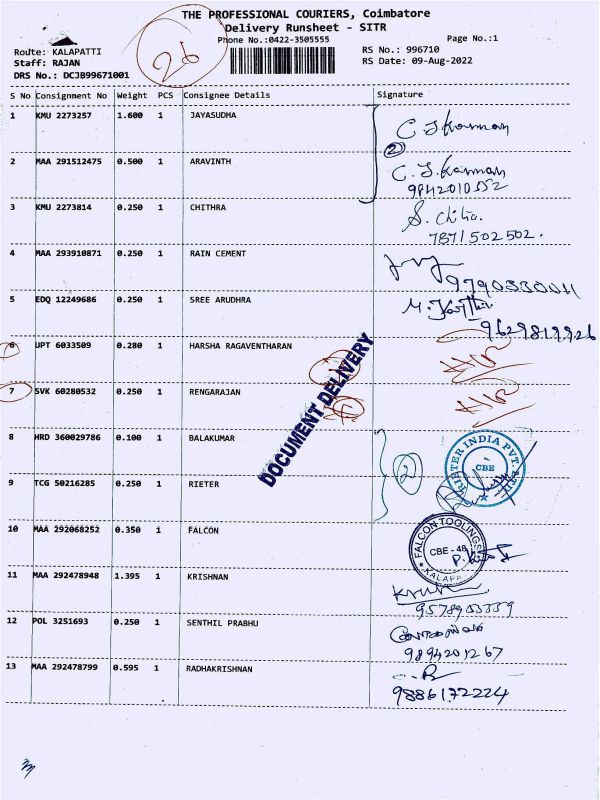 THE PROFESSIONAL COURIERS, Coimbatore
Delivery Runsheet - SITR
Phone No.:0422-3505555
Page No.:1
Route: KALAPATTI
RS No.: 996710
Staff: RAJAN
RS Date: 09-Aug-2022
DRS No.: DCJB99671001
26
S No Consignment No Weight PCS Consignee Details Signature
1 KMU 2273257 1.600 1 JAYASUDHA
2 MAA 291512475 0.500 1 ARAVINTH
2
9842010552
3 KMU 2273814 0.250 1 CHITHRA
S. Chitra.
7871502502.
4 MAA 293910871 0.250 1 RAIN CEMENT
9790330011
5 EDQ 12249686 0.250 1 SREE ARUDHRA
9629819926
6 UPT 6033509 0.280 1 HARSHA RAGAVENTHARAN
7 SVK 60280532 0.250 1 RENGARAJAN
DOCUMENT DELIVERY
8 HRD 360029786 0.100 1 BALAKUMAR
2
RIETER INDIA PVT. LTD.
CBE
9 TCG 50216285 0.250 1 RIETER
10 MAA 292068252 0.350 1 FALCON
FALCON TOOLINGS
CBE - 48
11 MAA 292478948 1.395 1 KRISHNAN
12 POL 3251693 0.250 1 SENTHIL PRABHU
9894201267
13 MAA 292478799 0.595 1 RADHAKRISHNAN
9886172224